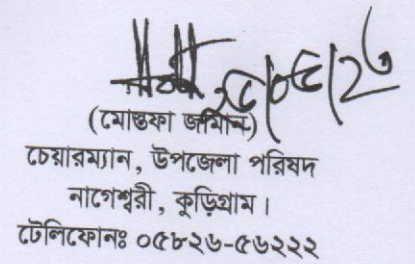 (মোস্তফা জামান)
চেয়ারম্যান, উপজেলা পরিষদ
নাগেশ্বরী, কুড়িগ্রাম।
টেলিফোনঃ ০৫৮২৬-৫৬২২২